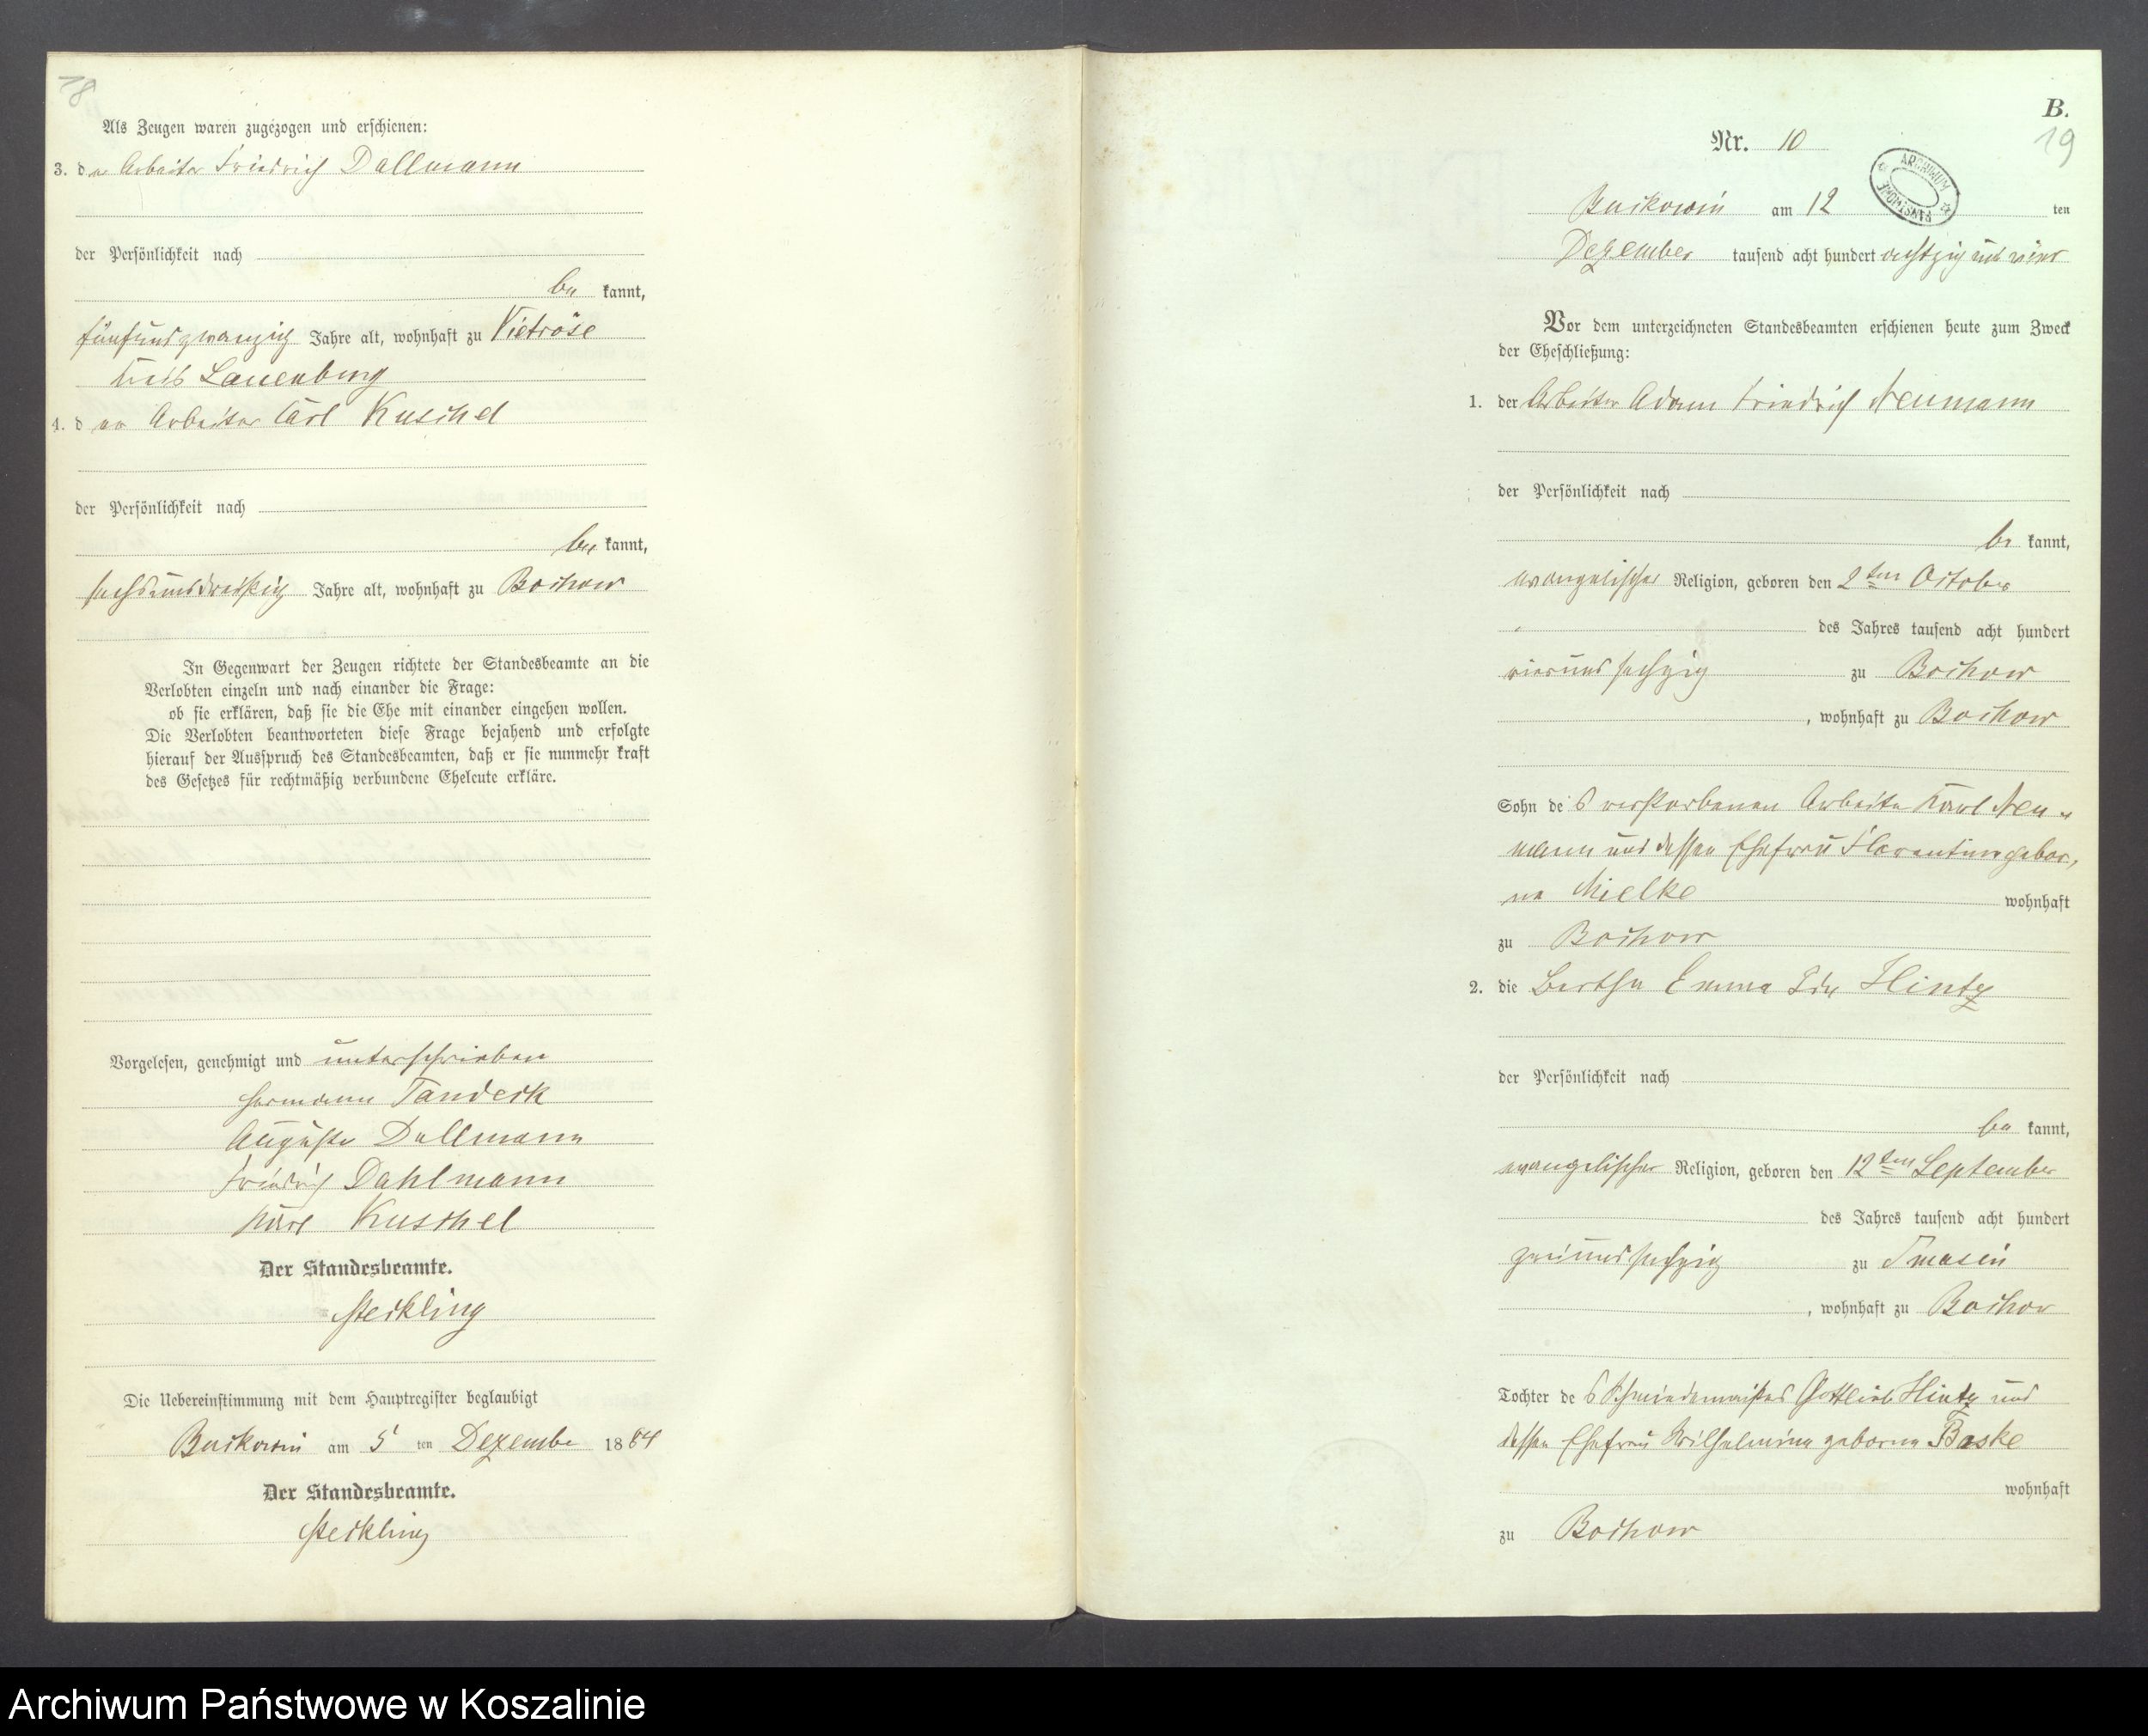 18
Als Zeugen waren zugezogen und erschienen:
3. der Arbeiter Friedrich Dallmann
der Persönlichkeit nach
be kannt,
fünfundzwanzig Jahre alt, wohnhaft zu Vietröse
Kreis Lauenburg
4. d er Arbeiter Carl Kuschel
der Persönlichkeit nach
be kannt,
sechsunddreißig Jahre alt, wohnhaft zu Bochow
In Gegenwart der Zeugen richtete der Standesbeamte an die
Verlobten einzeln und nach einander die Frage:
ob sie erklären, daß sie die Ehe mit einander eingehen wollen.
Die Verlobten beantworteten diese Frage bejahend und erfolgte
hierauf der Ausspruch des Standesbeamten, daß er sie nunmehr kraft
des Gesetzes für rechtmäßig verbundene Eheleute erkläre.
Vorgelesen, genehmigt und unterschrieben
Hermann Tandeck
Auguste Dallmann
Friedrich Dahlmann
Karl Kuschel
Der Standesbeamte.
Steckling
Die Uebereinstimmung mit dem Hauptregister beglaubigt
Buckowin am 5 ten Dezember 1884
Der Standesbeamte.
Steckling
B.
19
Nr. 10
ARCHIWUM PAŃSTWOWE
Buckowin am 12 ten
Dezember tausend acht hundert achtzig und vier
Vor dem unterzeichneten Standesbeamten erschienen heute zum Zweck
der Eheschließung:
1. der Arbeiter Adam Friedrich Neumann
der Persönlichkeit nach
be kannt,
evangelischer Religion, geboren den 2ten October
des Jahres tausend acht hundert
vierundsechzig zu Bochow
, wohnhaft zu Bochow
Sohn des verstorbenen Arbeiter Karl Neu-
mann und dessen Ehefrau Florentine gebor,
ne Mielke wohnhaft
zu Bochow
2. die Bertha Emma Ida Hintz
der Persönlichkeit nach
be kannt,
evangelischer Religion, geboren den 12ten September
des Jahres tausend acht hundert
zweiundsechzig zu
, wohnhaft zu Bochow
Tochter des Schmiedemeisters Gottlieb Hintz und
dessen Ehefrau Wilhelmine geborne Baske
wohnhaft
zu Bochow
Archiwum Państwowe w Koszalinie